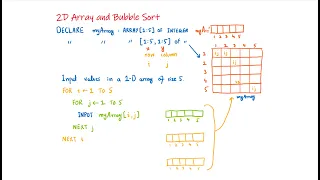 2D Array and Bubble Sort
DECLARE myArray : ARRAY[1:5] OF INTEGER
" " : " [1:5, 1:5] OF "
row column
i j
Input values in a 2-D array of size 5.
FOR i ← 1 TO 5
FOR j ← 1 TO 5
INPUT myArray[i,j]
NEXT j
NEXT i
1 2 3 4 5
1 2 3 4 5
1
2
3
4
5
myArray
1 2 3 4 5
1 2 3 4 5
1 2 3 4 5